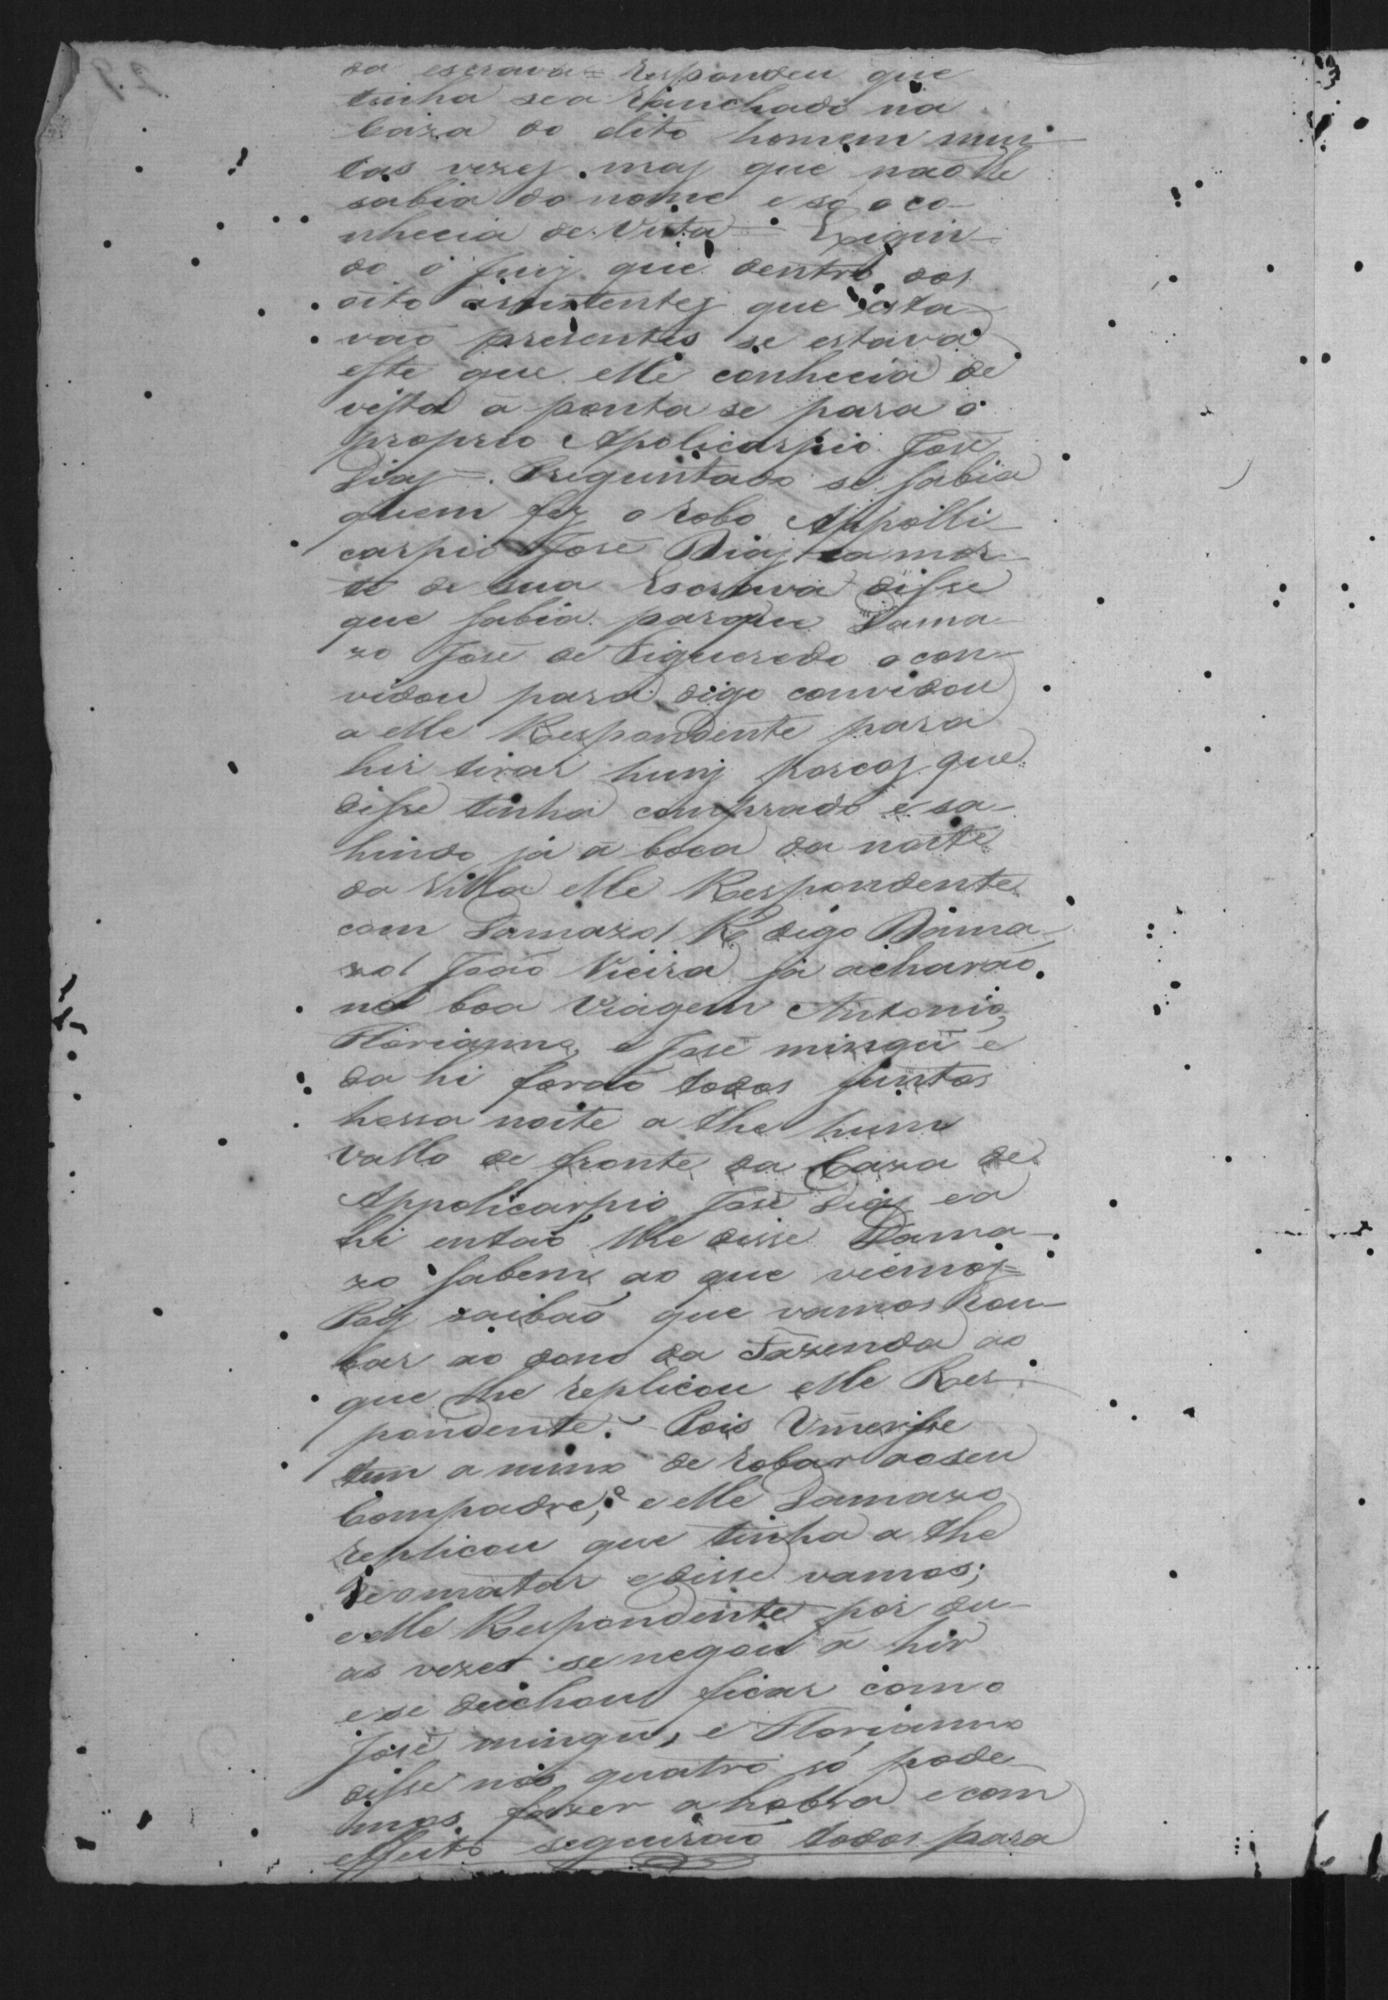 da escrava = Respondeu que
tinha se a Ranchado na
Caza do dito homem mui-
tas vezes mas que não lhe
sabia do nome e só o co-
nhecia de Vista = Exigin-
do o Juiz que dentro dos
oito asistentes que esta-
vão presentes se estava
este que elle conhecia de
vista a ponta se para o
proprio Apolicarpio José
Dias = Preguntado se sabia
quem fez o Robo Appolli-
carpio José Dias e a mor-
te de sua Escrava disse
que sabia porque Dama-
zo José de Figueredo o con-
vidou para digo convidou
a elle Respondente para
hir tirar huns Porcos que
disse tinha comprado e sa-
hindo já a boca da noite
da Villa elle Respondente
com Damazo / R digo Dama-
zo / João Vieira já acharão
na boa Viagem Antonio,
Florianno, e José mingu e
da hi forão todos juntos
nessa noite a the hum
Vallo de fronte da Caza de
Appolicarpio José Dias e a
hi então lhe disse Dama-
zo sabem ao que viemos =
Pois saibão que vamos Rou-
bar ao dono da Fazenda ao
que lhe Replicou elle Res-
pondente. Pois Vmerçe
tem a nimo de Robar ao seu
Compadre; e elle Damazo
Replicou que tinha a the
de o matar e disse vamos;
e elle Respondente por du-
as vezes se negou a hir
e se deichou ficar com o
José mingu, e Florianno
disse nós quatro só pode-
mos fazer a hobra e com
effeito seguirão todos para